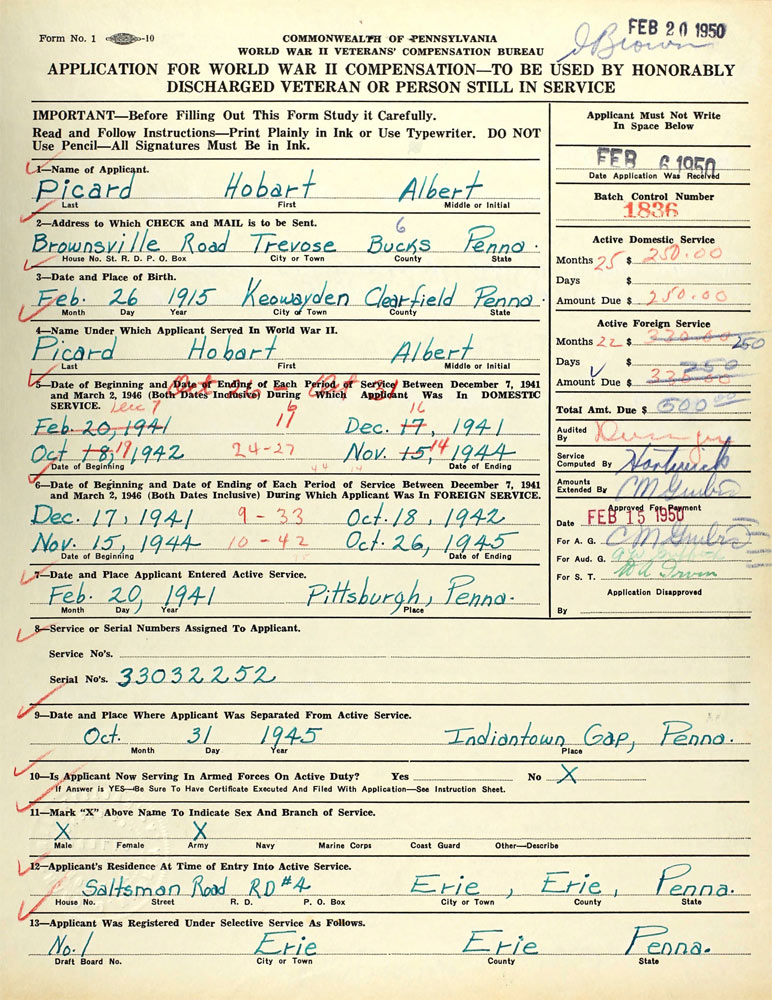 Form No. 1 -10
FEB 20 1950
COMMONWEALTH OF PENNSYLVANIA
WORLD WAR II VETERANS' COMPENSATION BUREAU
J Brown
APPLICATION FOR WORLD WAR II COMPENSATION—TO BE USED BY HONORABLY
DISCHARGED VETERAN OR PERSON STILL IN SERVICE
IMPORTANT—Before Filling Out This Form Study it Carefully.
Read and Follow Instructions—Print Plainly in Ink or Use Typewriter. DO NOT
Use Pencil—All Signatures Must Be in Ink.
Applicant Must Not Write
In Space Below
FEB 6 1950
Date Application Was Received
Batch Control Number
1836
Active Domestic Service
Months 25 $ 250.00
Days $
Amount Due $ 250.00
Active Foreign Service
Months 22 $ 330.00 250
Days $ 250
Amount Due $ 330.00
Total Amt. Due $ 500.00
Audited
By
Service
Computed By
Amounts
Extended By CM
Approved For Payment
Date FEB 15 1950
For A. G. CM
For Aud. G.
For S. T.
Application Disapproved
By
1—Name of Applicant.
Picard Hobart Albert
Last First Middle or Initial
2—Address to Which CHECK and MAIL is to be Sent. 6
Brownsville Road Trevose Bucks Penna.
House No. St. R. D. P. O. Box City or Town County State
3—Date and Place of Birth.
Feb. 26 1915 Keowayden Clearfield Penna.
Month Day Year City or Town County State
4—Name Under Which Applicant Served In World War II.
Picard Hobart Albert
Last First Middle or Initial
5—Date of Beginning and Date of Ending of Each Period of Service Between December 7, 1941
and March 2, 1946 (Both Dates Inclusive) During Which Applicant Was In DOMESTIC
SERVICE. Dec 7 16
Feb. 20, 1941 Dec. 17, 1941
Oct 18, 19 1942 24-27 Nov. 15, 14 1944
Date of Beginning Date of Ending
6—Date of Beginning and Date of Ending of Each Period of Service Between December 7, 1941
and March 2, 1946 (Both Dates Inclusive) During Which Applicant Was In FOREIGN SERVICE.
Dec. 17, 1941 9-33 Oct. 18, 1942
Nov. 15, 1944 10-42 Oct. 26, 1945
Date of Beginning Date of Ending
7—Date and Place Applicant Entered Active Service.
Feb. 20, 1941 Pittsburgh, Penna.
Month Day Year Place
8—Service or Serial Numbers Assigned To Applicant.
Service No's.
Serial No's. 33032252
9—Date and Place Where Applicant Was Separated From Active Service.
Oct. 31 1945 Indiantown Gap, Penna.
Month Day Year Place
10—Is Applicant Now Serving In Armed Forces On Active Duty? Yes No X
If Answer is YES—Be Sure To Have Certificate Executed And Filed With Application—See Instruction Sheet.
11—Mark "X" Above Name To Indicate Sex And Branch of Service.
X X
Male Female Army Navy Marine Corps Coast Guard Other—Describe
12—Applicant's Residence At Time of Entry Into Active Service.
Saltsman Road RD #4 Erie, Erie, Penna.
House No. Street R. D. P. O. Box City or Town County State
13—Applicant Was Registered Under Selective Service As Follows.
No. 1 Erie Erie Penna.
Draft Board No. City or Town County State